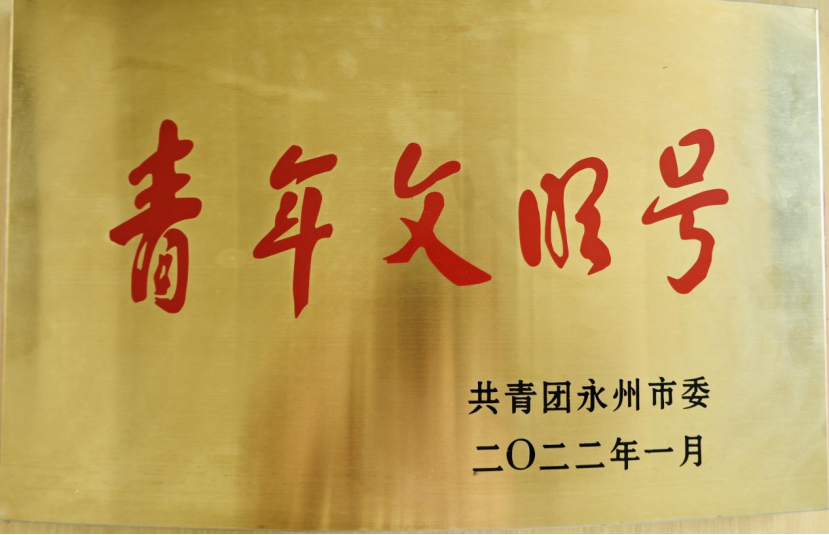 青年文明号
共青团永州市委
二〇二二年一月